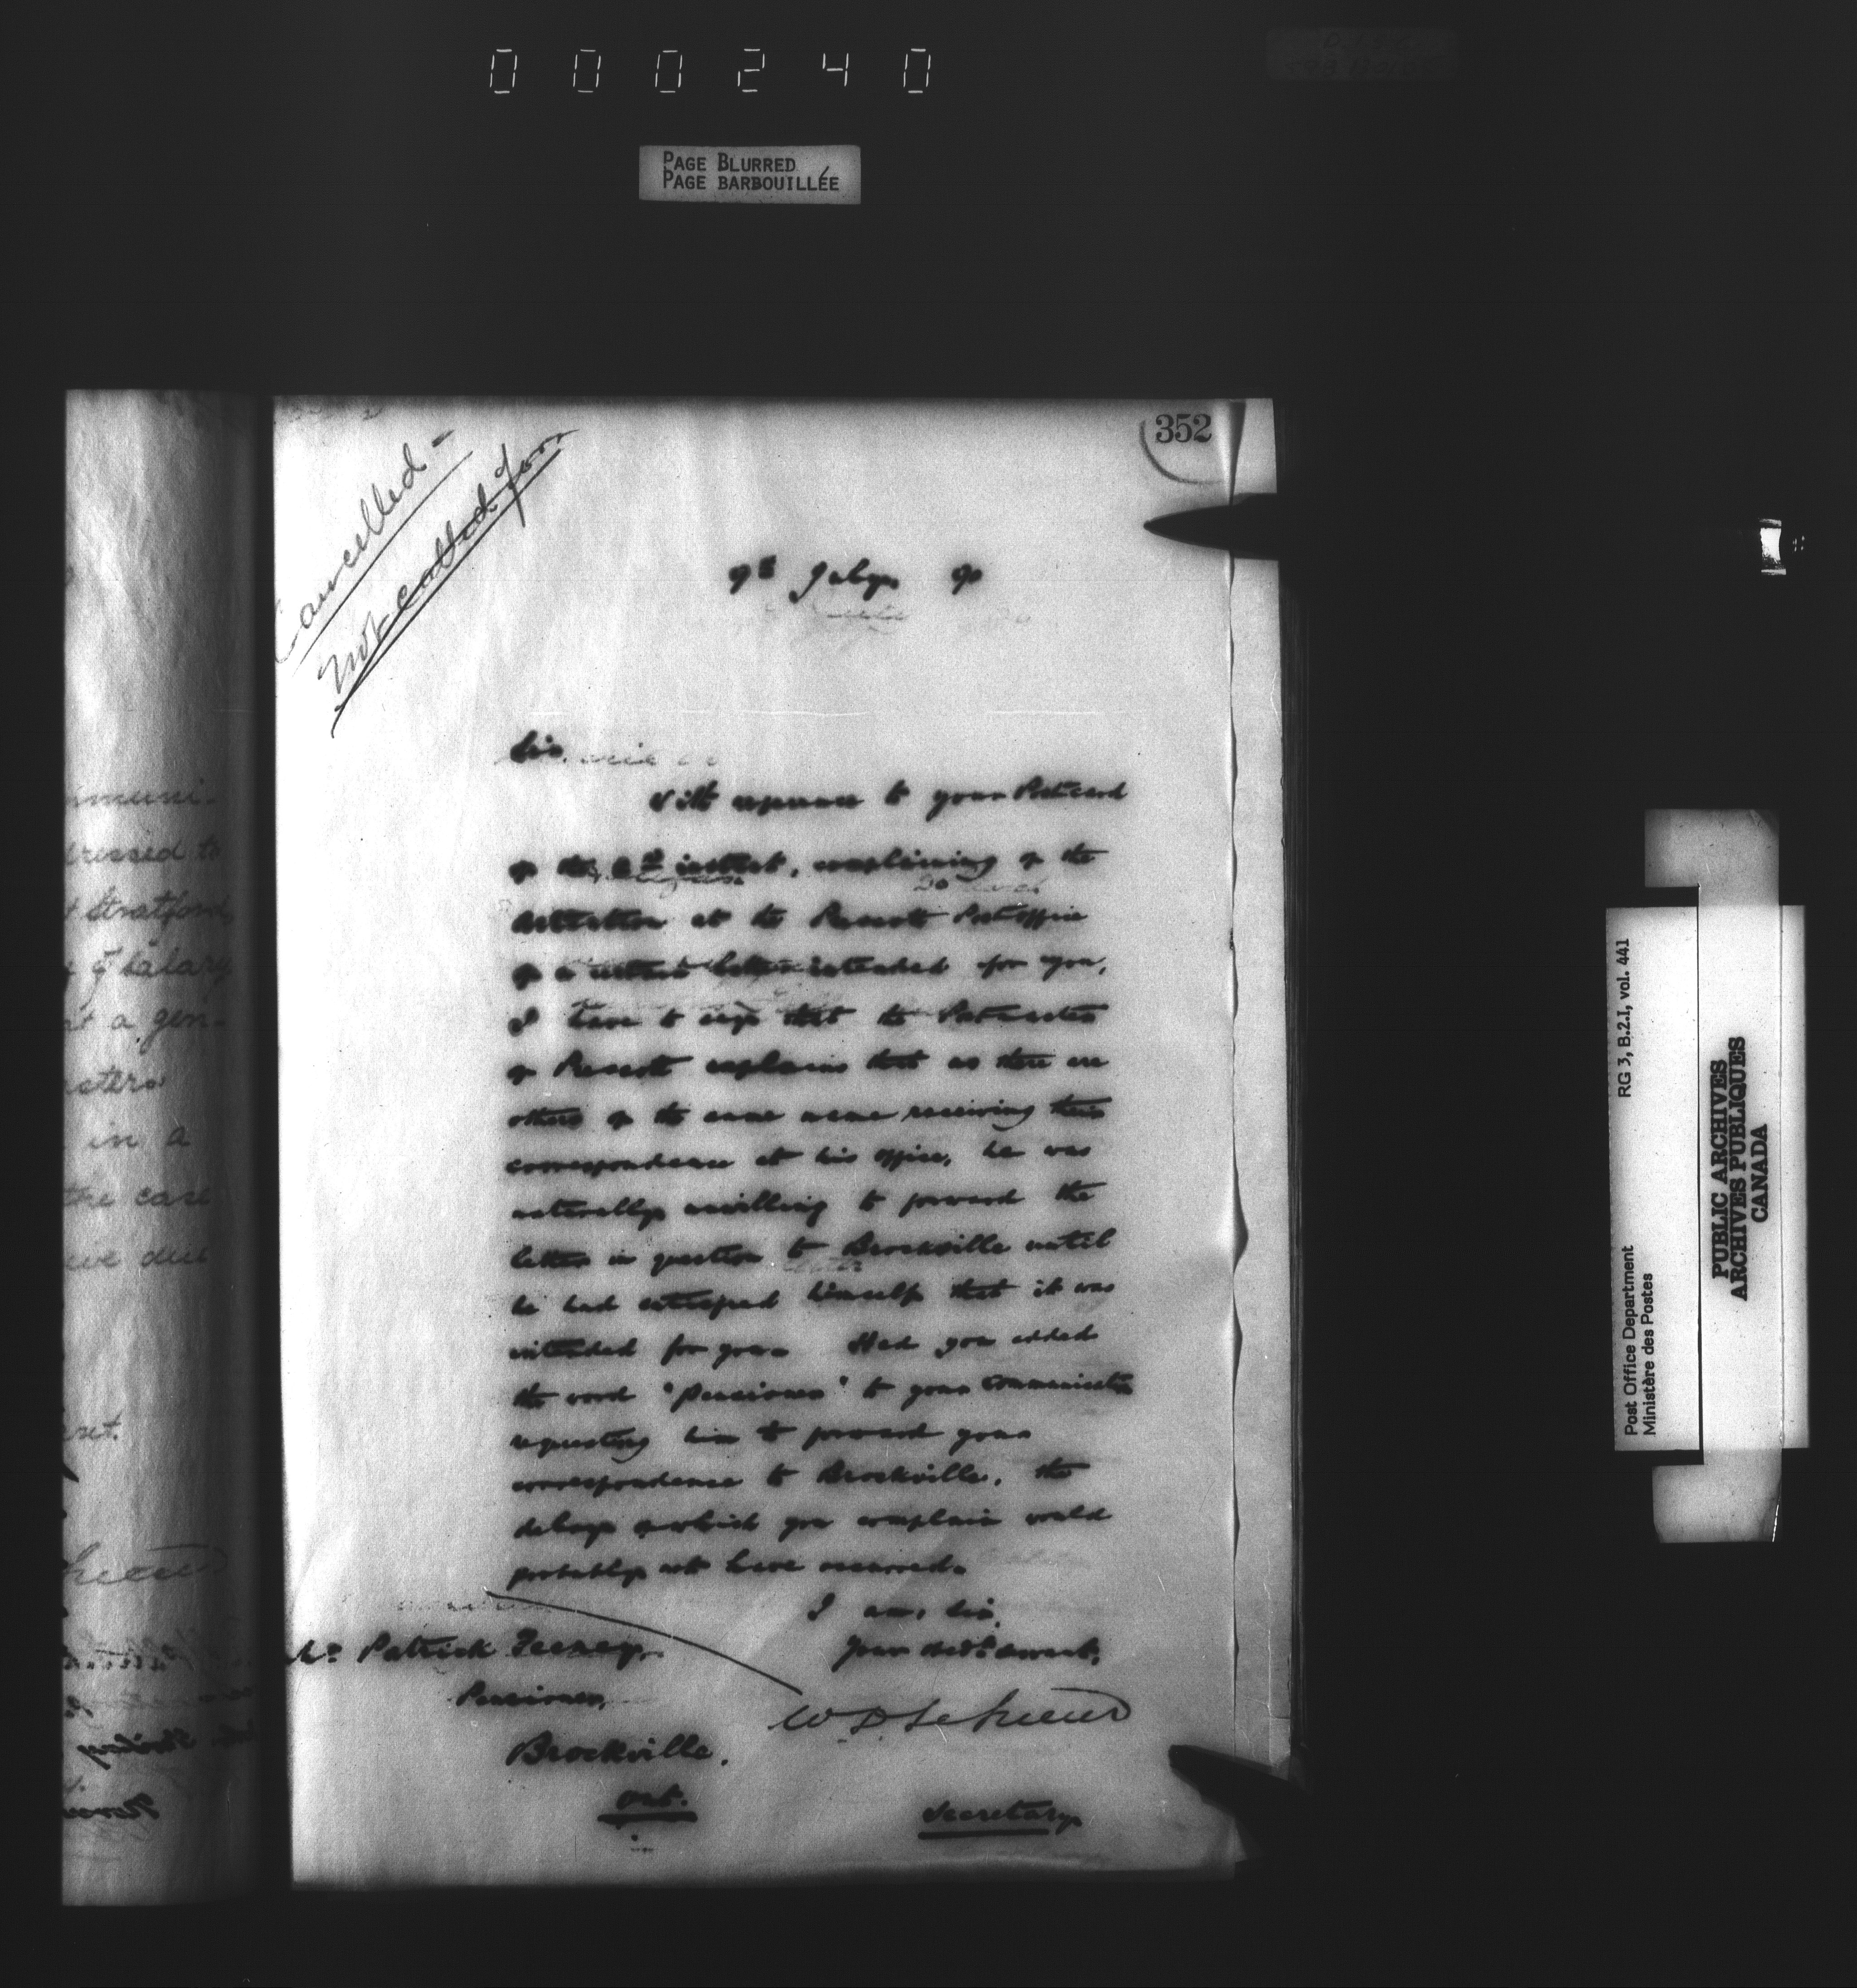 000240
PAGE BLURRED
PAGE BARBOUILLÉE
352
Cancelled -
Not called for
9th July 90
Sir,
With reference to your Postcard
of the 2nd instant, complaining of the
detention at the Prescott Post Office
of a certain letter intended for you,
I have to say that the Postmaster
of Prescott explains that as there are
others of the same name receiving their
correspondence at his office, he was
naturally unwilling to forward the
letter in question to Brockville until
he had satisfied himself that it was
intended for you. Had you added
the word "Pensioner" to your communication
requesting him to forward your
correspondence to Brockville, the
delay of which you complain would
probably not have occurred.
I am, Sir,
Your obedt. Servant,
Mr Patrick Feeney,
Pensioner,
Brockville,
Ont.
W D LeSueur
Secretary
mmuni-
dressed to
t Stratford,
of Salary
at a gen-
asters
in a
the case
eive due
RG 3, B.2.I, vol. 441
Post Office Department
Ministère des Postes
PUBLIC ARCHIVES
ARCHIVES PUBLIQUES
CANADA